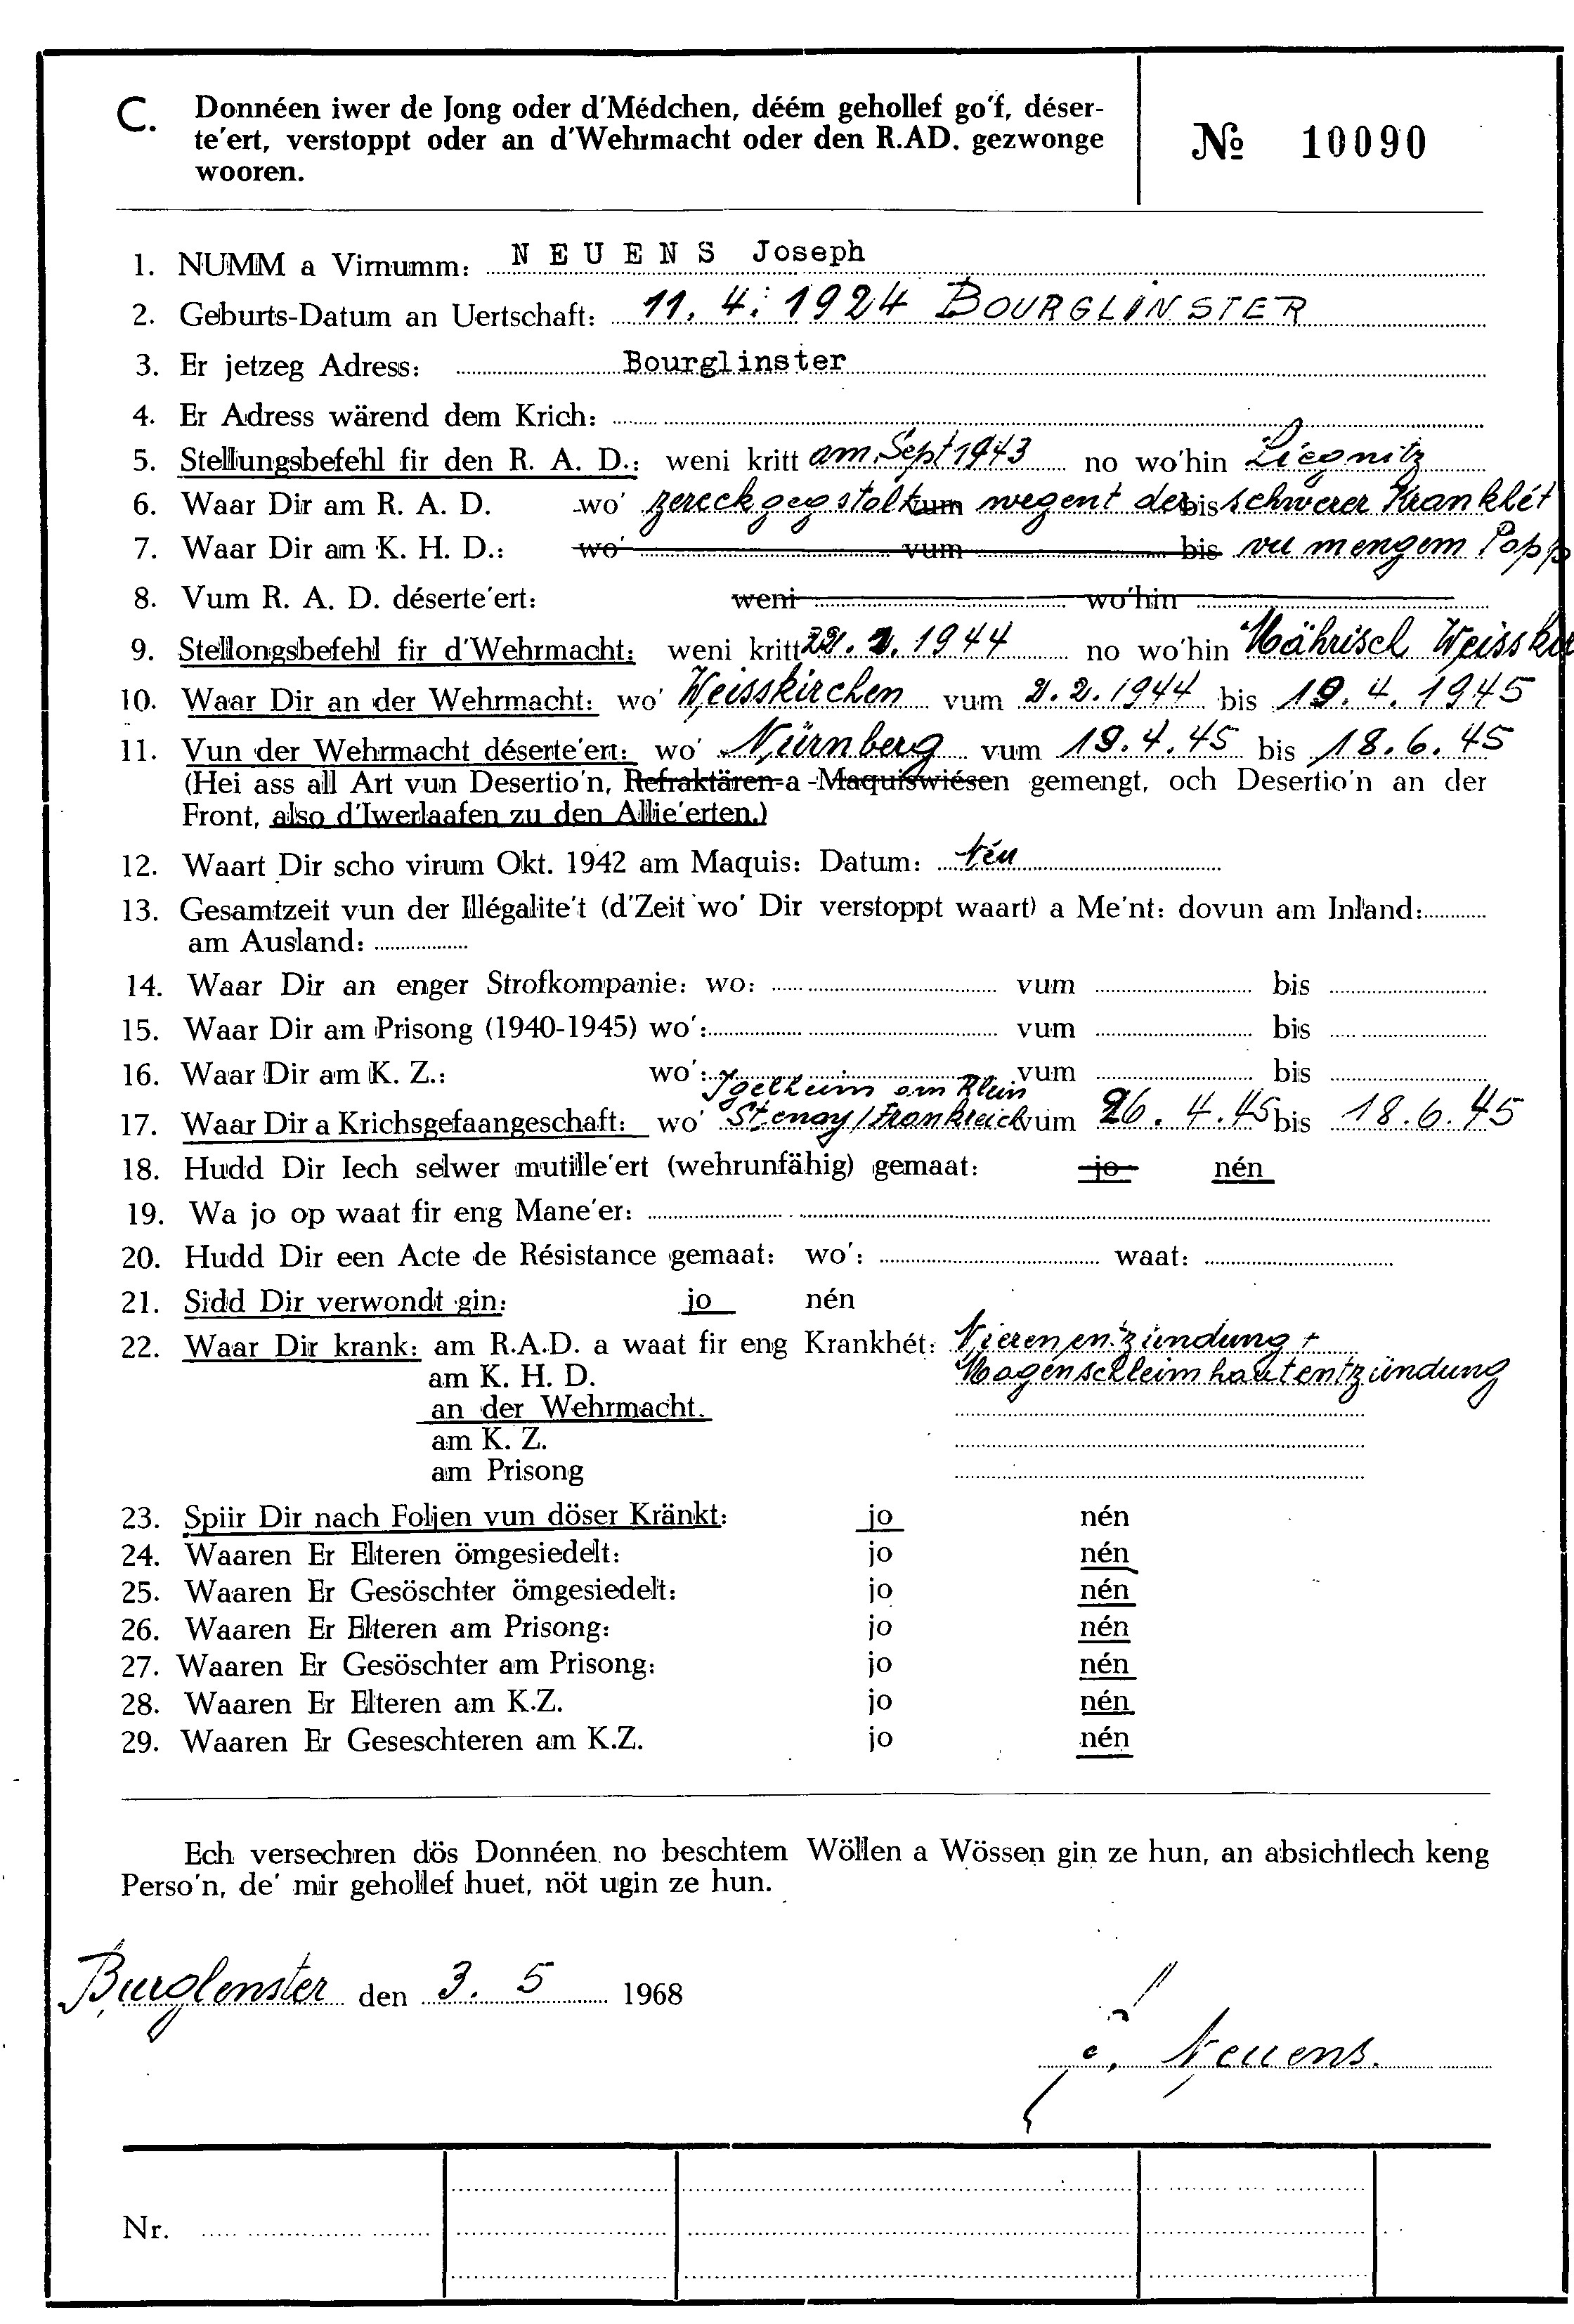 C. Donnéen iwer de Jong oder d'Médchen, déém gehollef go'f, déser-
te'ert, verstoppt oder an d'Wehrmacht oder den R.AD. gezwonge
wooren.
№ 10090
1. NUMM a Virnumm: NEUENS Joseph
2. Geburts-Datum an Uertschaft: 11. 4. 1924 BOURGLINSTER
3. Er jetzeg Adress: Bourglinster
4. Er Adress wärend dem Krich:
5. Stellungsbefehl fir den R. A. D.: weni kritt am Sept 1943 no wo'hin Liegnitz
6. Waar Dir am R. A. D. wo' zereckgegstalt vum wegent der bis schwerer Krankhét
7. Waar Dir am K. H. D.: wo' vum bis vu mengem Popp
8. Vum R. A. D. déserte'ert: weni wo'hin
9. Stellongsbefehl fir d'Wehrmacht: weni kritt 1944 no wo'hin Mährisch Weisskir
10. Waar Dir an der Wehrmacht: wo' Weisskirchen vum 2. 2. 1944 bis 19. 4. 1945
11. Vun der Wehrmacht déserte'ert: wo' Nürnberg vum 19. 4. 45 bis 18. 6. 45
(Hei ass all Art vun Desertio'n, Refraktären- a -Maquiswiésen gemengt, och Desertio'n an der
Front, also d'Iwerlaafen zu den Allie'erten.)
12. Waart Dir scho virum Okt. 1942 am Maquis: Datum: Nén
13. Gesamtzeit vun der Illégalite't (d'Zeit wo' Dir verstoppt waart) a Me'nt: dovun am Inland:
am Ausland:
14. Waar Dir an enger Strofkompanie: wo: vum bis
15. Waar Dir am Prisong (1940-1945) wo': vum bis
16. Waar Dir am K. Z.: wo': vum bis
am Rhein
17. Waar Dir a Krichsgefaangeschaft: wo' Stenay/Frankreich vum 26. 4. 45 bis 18. 6. 45
18. Hudd Dir Iech selwer mutille'ert (wehrunfähig) gemaat: jo nén
19. Wa jo op waat fir eng Mane'er:
20. Hudd Dir een Acte de Résistance gemaat: wo': waat:
21. Sidd Dir verwondt gin: jo nén
22. Waar Dir krank: am R.A.D. a waat fir eng Krankhét: Nierenentzündung +
am K. H. D. Magenschleimhautentzündung
an der Wehrmacht.
am K. Z.
am Prisong
23. Spiir Dir nach Foljen vun döser Kränkt: jo nén
24. Waaren Er Elteren ömgesiedelt: jo nén
25. Waaren Er Gesöschter ömgesiedelt: jo nén
26. Waaren Er Elteren am Prisong: jo nén
27. Waaren Er Gesöschter am Prisong: jo nén
28. Waaren Er Elteren am K.Z. jo nén
29. Waaren Er Geseschteren am K.Z. jo nén
Ech versechren dös Donnéen no beschtem Wöllen a Wössen gin ze hun, an absichtlech keng
Perso'n, de' mir gehollef huet, nöt ugin ze hun.
Burglenster den 3. 5 1968
J. Neuens.
Nr.